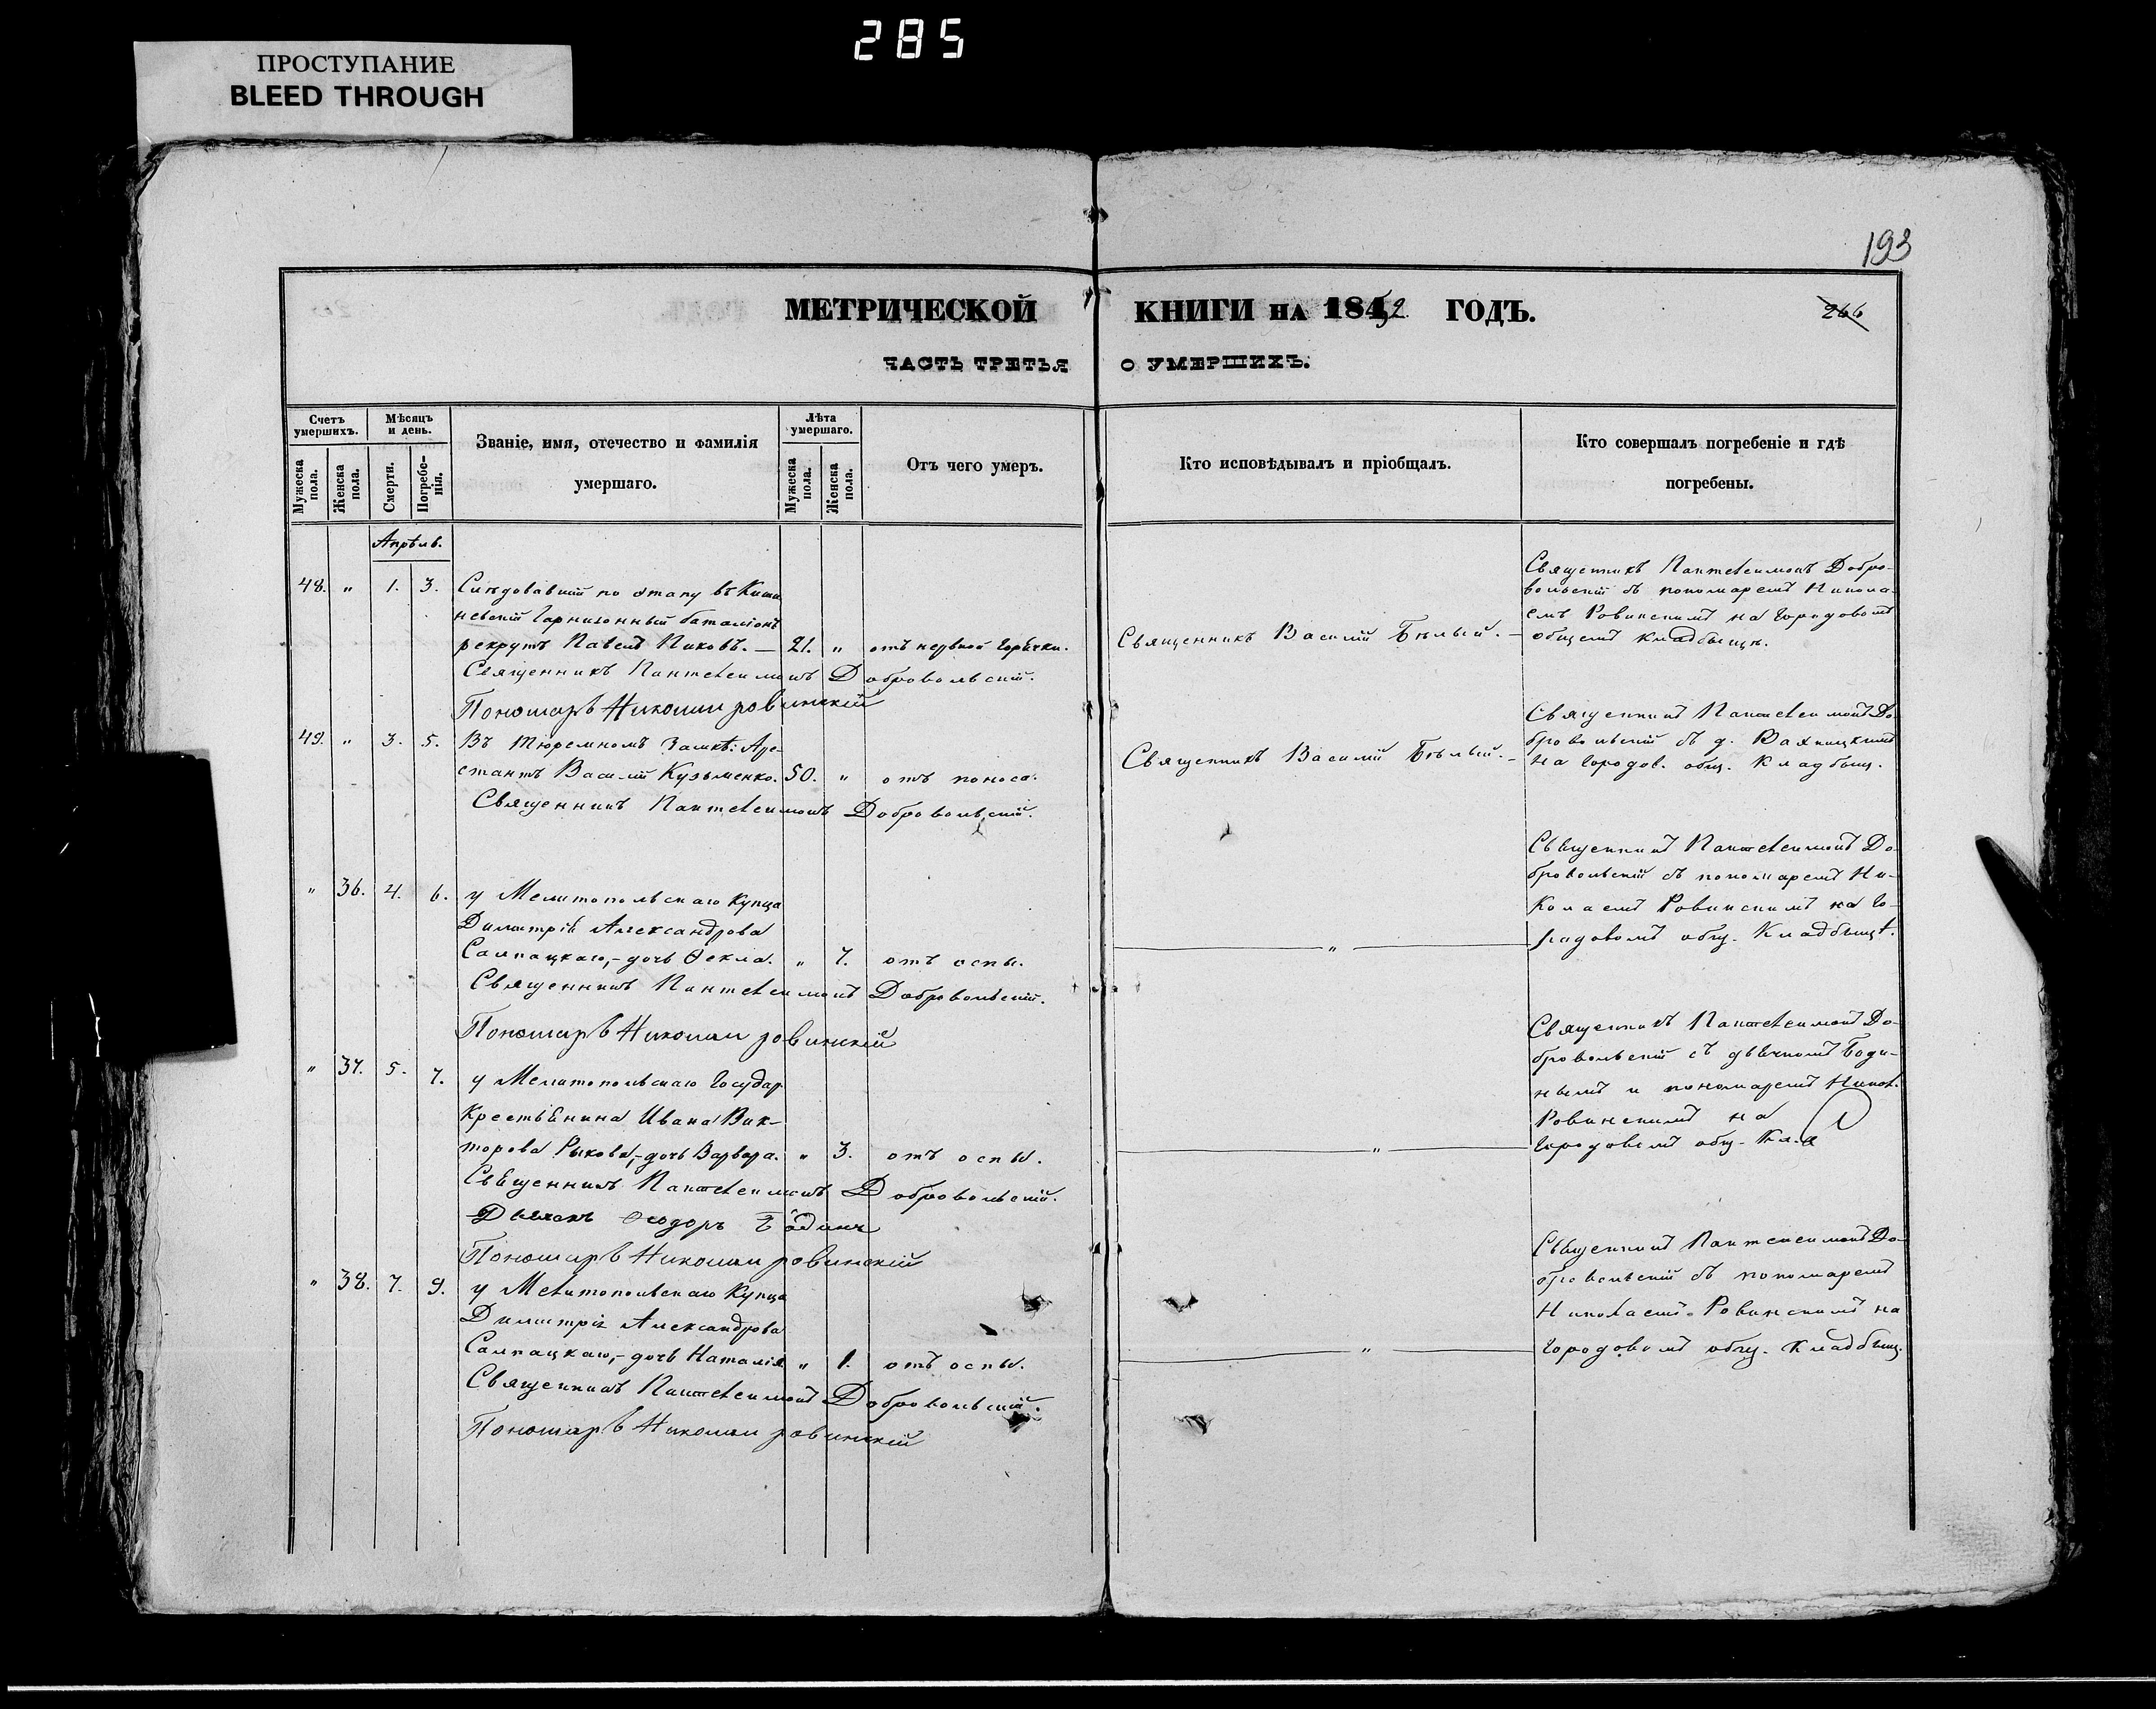 285
ПРОСТУПАНИЕ
BLEED THROUGH
193
МЕТРИЧЕСКОЙ КНИГИ НА 1852 ГОДЪ.
266
ЧАСТЬ ТРЕТЬЯ О УМЕРШИХЪ.
Счетъ умершихъ.
Мужеска пола.
Женска пола.
Мѣсяцъ и день.
Смерти.
Погребе-
нія.
Званіе, имя, отечество и фамилія
умершаго.
Лѣта умершаго.
Мужеска пола.
Женска пола.
Отъ чего умеръ.
Кто исповѣдывалъ и пріобщалъ.
Кто совершалъ погребеніе и гдѣ
погребены.
Апрѣль.
48. " 1. 3. Слѣдовавшій по этапу въ Киши
невскій Гарнизонный баталіонъ
рекрутъ Павелъ Пиковъ. — 21. " отъ нервной горячки.
Священникъ Василій Бѣлый. —
Священникъ Пантелеимонъ Добро-
вольскій съ пономаремъ Никола-
емъ Ровинскимъ на Городовомъ
общемъ кладбищѣ.
Священникъ Пантелеимонъ Добровольскій.
Пономарь Николай Ровинскій
49. " 3. 5. Въ тюремномъ Замкѣ: Аре-
стантъ Василій Кузьменко. 50. " отъ поноса.
Священникъ Василій Бѣлый. —
Священникъ Пантелеимонъ До-
бровольскій съ д. Вахницкимъ
на Городов. общ. Кладбищ.
Священникъ Пантелеимонъ Добровольскій.
" 36. 4. 6. у Мелитопольскаго Купца
Димитрія Александрова
Салпацкаго,- дочь Ѳекла. " 7. отъ оспы.
"
Священникъ Пантелеимонъ До-
бровольскій съ пономаремъ Ни-
колаемъ Ровинскимъ на Го-
родовомъ общ. Кладбищѣ.
Священникъ Пантелеимонъ Добровольскій.
Пономарь Николай Ровинскій
" 37. 5. 7. у Мелитопольскаго Государ.
Крестьянина Ивана Вик-
торова Рыкова,- дочь Варвара. " 3. отъ оспы.
"
Священникъ Пантелеимонъ До-
бровольскій съ дьячкомъ Боди-
нымъ и пономаремъ Никол.
Ровинскимъ на
Городовомъ общ. Клад
Священникъ Пантелеимонъ Добровольскій.
Дьячекъ Ѳеодоръ Бодинъ
Пономарь Николай Ровинскій
" 38. 7. 9. у Мелитопольскаго Купца
Димитрія Александрова
Салпацкаго,- дочь Наталія " 1. отъ оспы.
"
Священникъ Пантелеимонъ До-
бровольскій съ пономаремъ
Николаемъ Ровинскимъ на
Городовомъ общ. Кладбищ.
Священникъ Пантелеимонъ Добровольскій.
Пономарь Николай Ровинскій